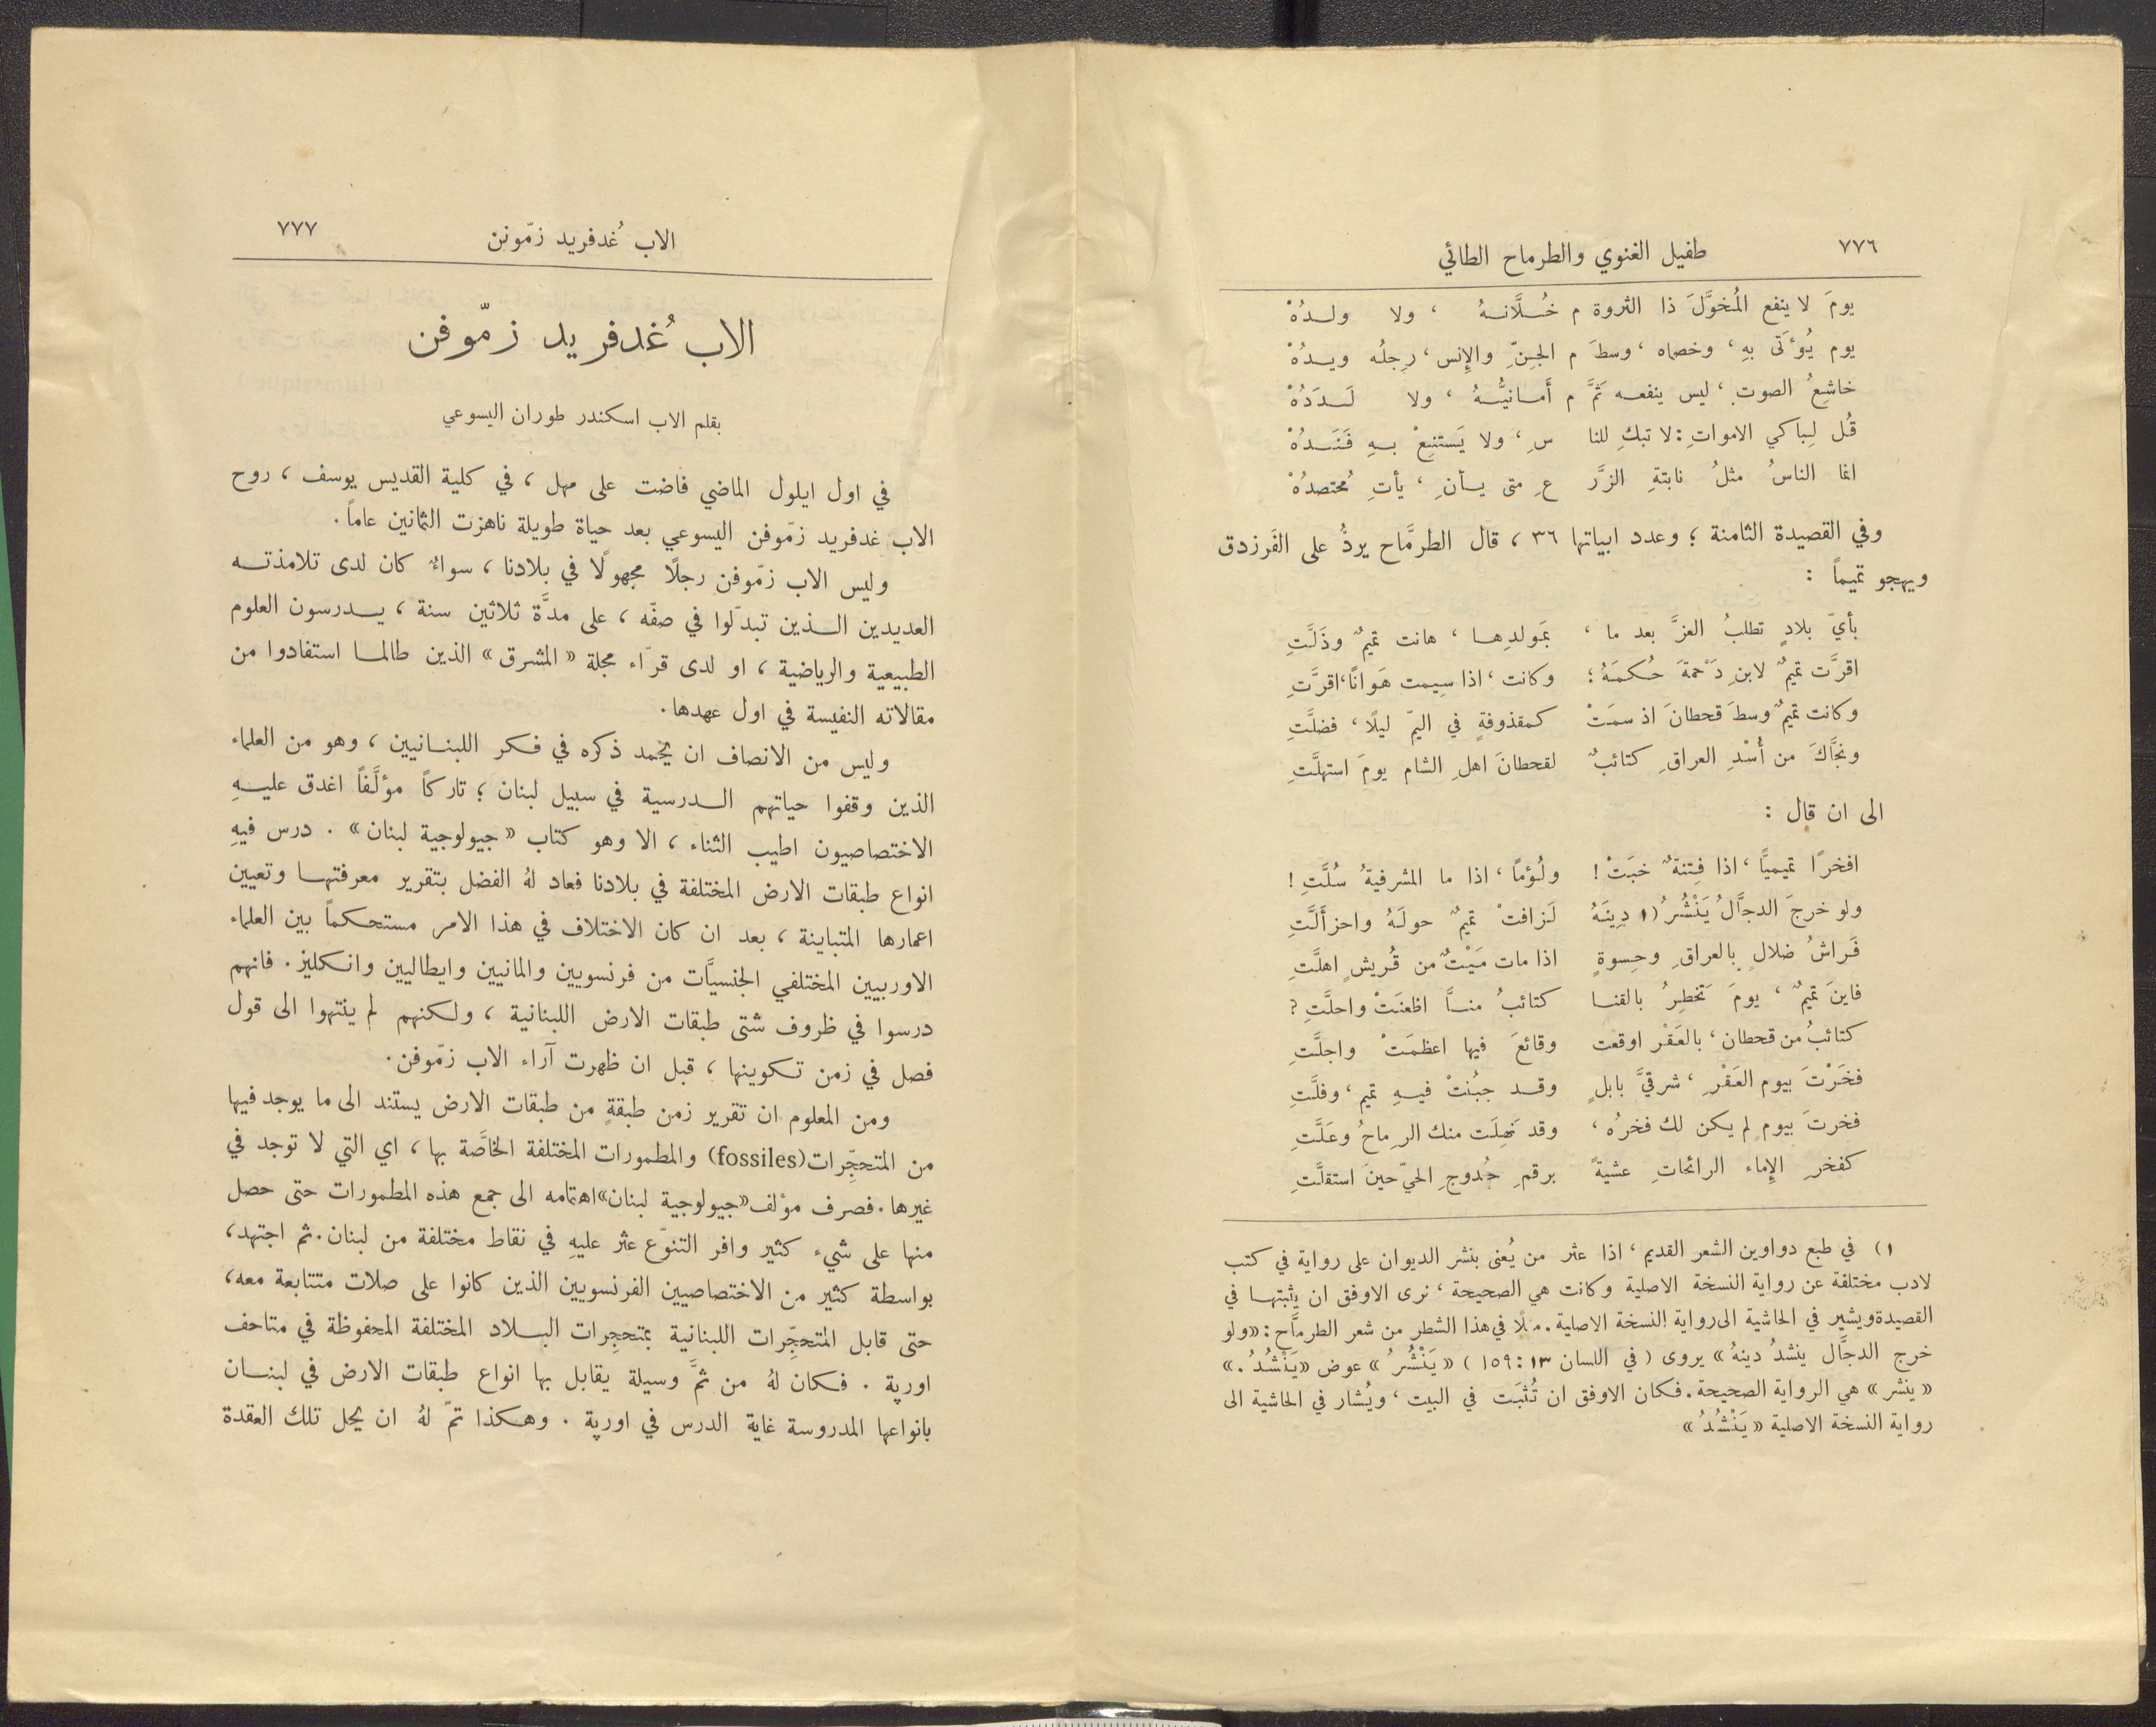 ٧٧٦ طفيل الغنوي والطرماح الطائي
يومَ لا ينفع المُخوَّلَ ذا الثروة م خُلَّانهُ ، ولا ولدُهْ
يوم يُؤْتَى بهِ ، وخصماه ، وسطَ م الجِنِّ والإِنس ، رِجلُه ويدُهْ
خاشِعُ الصوتِ ، ليس ينفعه ثَمَّ م أَمانيُّهُ ، ولا لَدَدُهْ
قُل لِباكي الامواتِ : لا تبكِ للنا سِ ، ولا يَستنِعْ بهِ فَنَدُهْ
انما الناسُ مثلُ نابتةِ الزَّر عِ متى يأنِ ، يأتِ مُحتصدُهْ
وفي القصيدة الثامنة ؛ وعدد ابياتها ٣٦ ، قال الطرمَّاح يردُّ على الفَرزدق
ويهجو تميماً :
بأيّ بلادٍ تطلبُ العزَّ بعد ما ، بمَولدِها ، هانت تميمٌ وذَلَّتِ
اقرَّت تميمٌ لابنِ دَحْمةَ حُكمَهُ ؛ وكانت ، اذا سِيمت هَوانًا ، اقرَّتِ
وكانت تميمٌ وسطَ قحطانَ اذ سمَتْ كمقذوفةٍ في اليمّ ليلًا ، فضلَّتِ
ونجَّاكَ من أُسْدِ العراقِ كتائبٌ لقحطانَ اهلِ الشام يومَ استهلَّتِ
الى ان قال :
افخرًا تميميًّا ، اذا فِتنةٌ خبَتْ ! ولُؤمًا ، اذا ما المشرفيةُ سُلَّتِ !
ولو خرجَ الدجَّالُ يَنْشُرُ (١ دِينَهُ لَزافتْ تميمٌ حولَهُ واحزأَلَّتِ
فَراشُ ضلالٍ بالعراقِ وجِسوةٍ اذا مات مَيْتٌ من قُريشٍ اهلَّتِ
فاينَ تميمٌ ، يومَ تَخطِرُ بالقنا كتائبُ منَّا اظعنَتْ واحلَّتِ ؟
كتائبُ من قحطان ، بالعَقْر اوقعت وقائعَ فيها اعظمَتْ واجلَّتِ
فخَرْتَ بيوم العَقْرِ ، شرقيَّ بابلٍ وقد جبُنتْ فيهِ تميم ، وفلَّتِ
فخرتَ بيومٍ لم يكن لك فخرُه ، وقد نَهِلَت منك الرِماحُ وعَلَّتِ
كفخرِ الإِماء الرائحاتِ عشيةً برقمِ حُدوجِ الحيّ حينَ استقلَّتِ
١) في طبع دواوين الشعر القديم ، اذا عثر من يُعنى بنشر الديوان على رواية في كتب
لادب مختلفة عن رواية النسخة الاصلية وكانت هي الصحيحة ، نرى الاوفق ان يثبتها في
القصيدة ويشير في الحاشية الى رواية النسخة الاصلية . مثلًا في هذا الشطر من شعر الطرمَّاح : «ولو
خرج الدجَّال ينشدُ دينهُ » يروى ( في اللسان ١٣ : ١٥٩ ) « يَنْشُرُ » عوض « يَنْشُدُ . »
« ينشر » هي الرواية الصحيحة . فكان الاوفق ان تُثبَت في البيت ، ويُشار في الحاشية الى
رواية النسخة الاصلية « يَنْشُدُ »
الاب غُدفريد زمّونن ٧٧٧
الاب غُدفريد زمّوفن
بقلم الاب اسكندر طوران اليسوعي
في اول ايلول الماضي فاضت على مهل ، في كلية القديس يوسف ، روح
الاب غدفريد زمّوفن اليسوعي بعد حياة طويلة ناهزت الثمانين عاماً .
وليس الاب زمّوفن رجلًا مجهولًا في بلادنا ، سواءٌ كان لدى تلامذته
العديدين الذين تبدّلوا في صفّه ، على مدَّة ثلاثين سنة ، يدرسون العلوم
الطبيعية والرياضية ، او لدى قرّاء مجلة « المشرق » الذين طالما استفادوا من
مقالاته النفيسة في اول عهدها .
وليس من الانصاف ان يخمد ذكره في فكر اللبنانيين ، وهو من العلماء
الذين وقفوا حياتهم الدرسية في سبيل لبنان ؛ تاركاً مؤلَّفاً اغدق عليهِ
الاختصاصيون اطيب الثناء ، الا وهو كتاب « جيولوجية لبنان » . درس فيهِ
انواع طبقات الارض المختلفة في بلادنا فعاد لهُ الفضل بتقرير معرفتها وتعيين
اعمارها المتباينة ، بعد ان كان الاختلاف في هذا الامر مستحكماً بين العلماء
الاوربيين المختلفي الجنسيَّات من فرنسويين والمانيين وايطاليين وانكليز . فانهم
درسوا في ظروف شتى طبقات الارض اللبنانية ، ولكنهم لم ينتهوا الى قول
فصل في زمن تكوينها ، قبل ان ظهرت آراء الاب زمّوفن .
ومن المعلوم ان تقرير زمن طبقةٍ من طبقات الارض يستند الى ما يوجد فيها
من المتحجِّرات (fossiles) والمطمورات المختلفة الخاصَّة بها ، اي التي لا توجد في
غيرها . فصرف مؤلف « جيولوجية لبنان » اهتمامه الى جمع هذه المطمورات حتى حصل
منها على شيء كثير وافر التنوّع عثر عليهِ في نقاط مختلفة من لبنان . ثم اجتهد ،
بواسطة كثير من الاختصاصيين الفرنسويين الذين كانوا على صلات متتابعة معه ،
حتى قابل المتحجِّرات اللبنانية بمتحجِرات البلاد المختلفة المحفوظة في متاحف
اورپة . فكان لهُ من ثَمَّ وسيلة يقابل بها انواع طبقات الارض في لبنان
بانواعها المدروسة غاية الدرس في اورپة . وهكذا تمّ لهُ ان يحل تلك العقدة